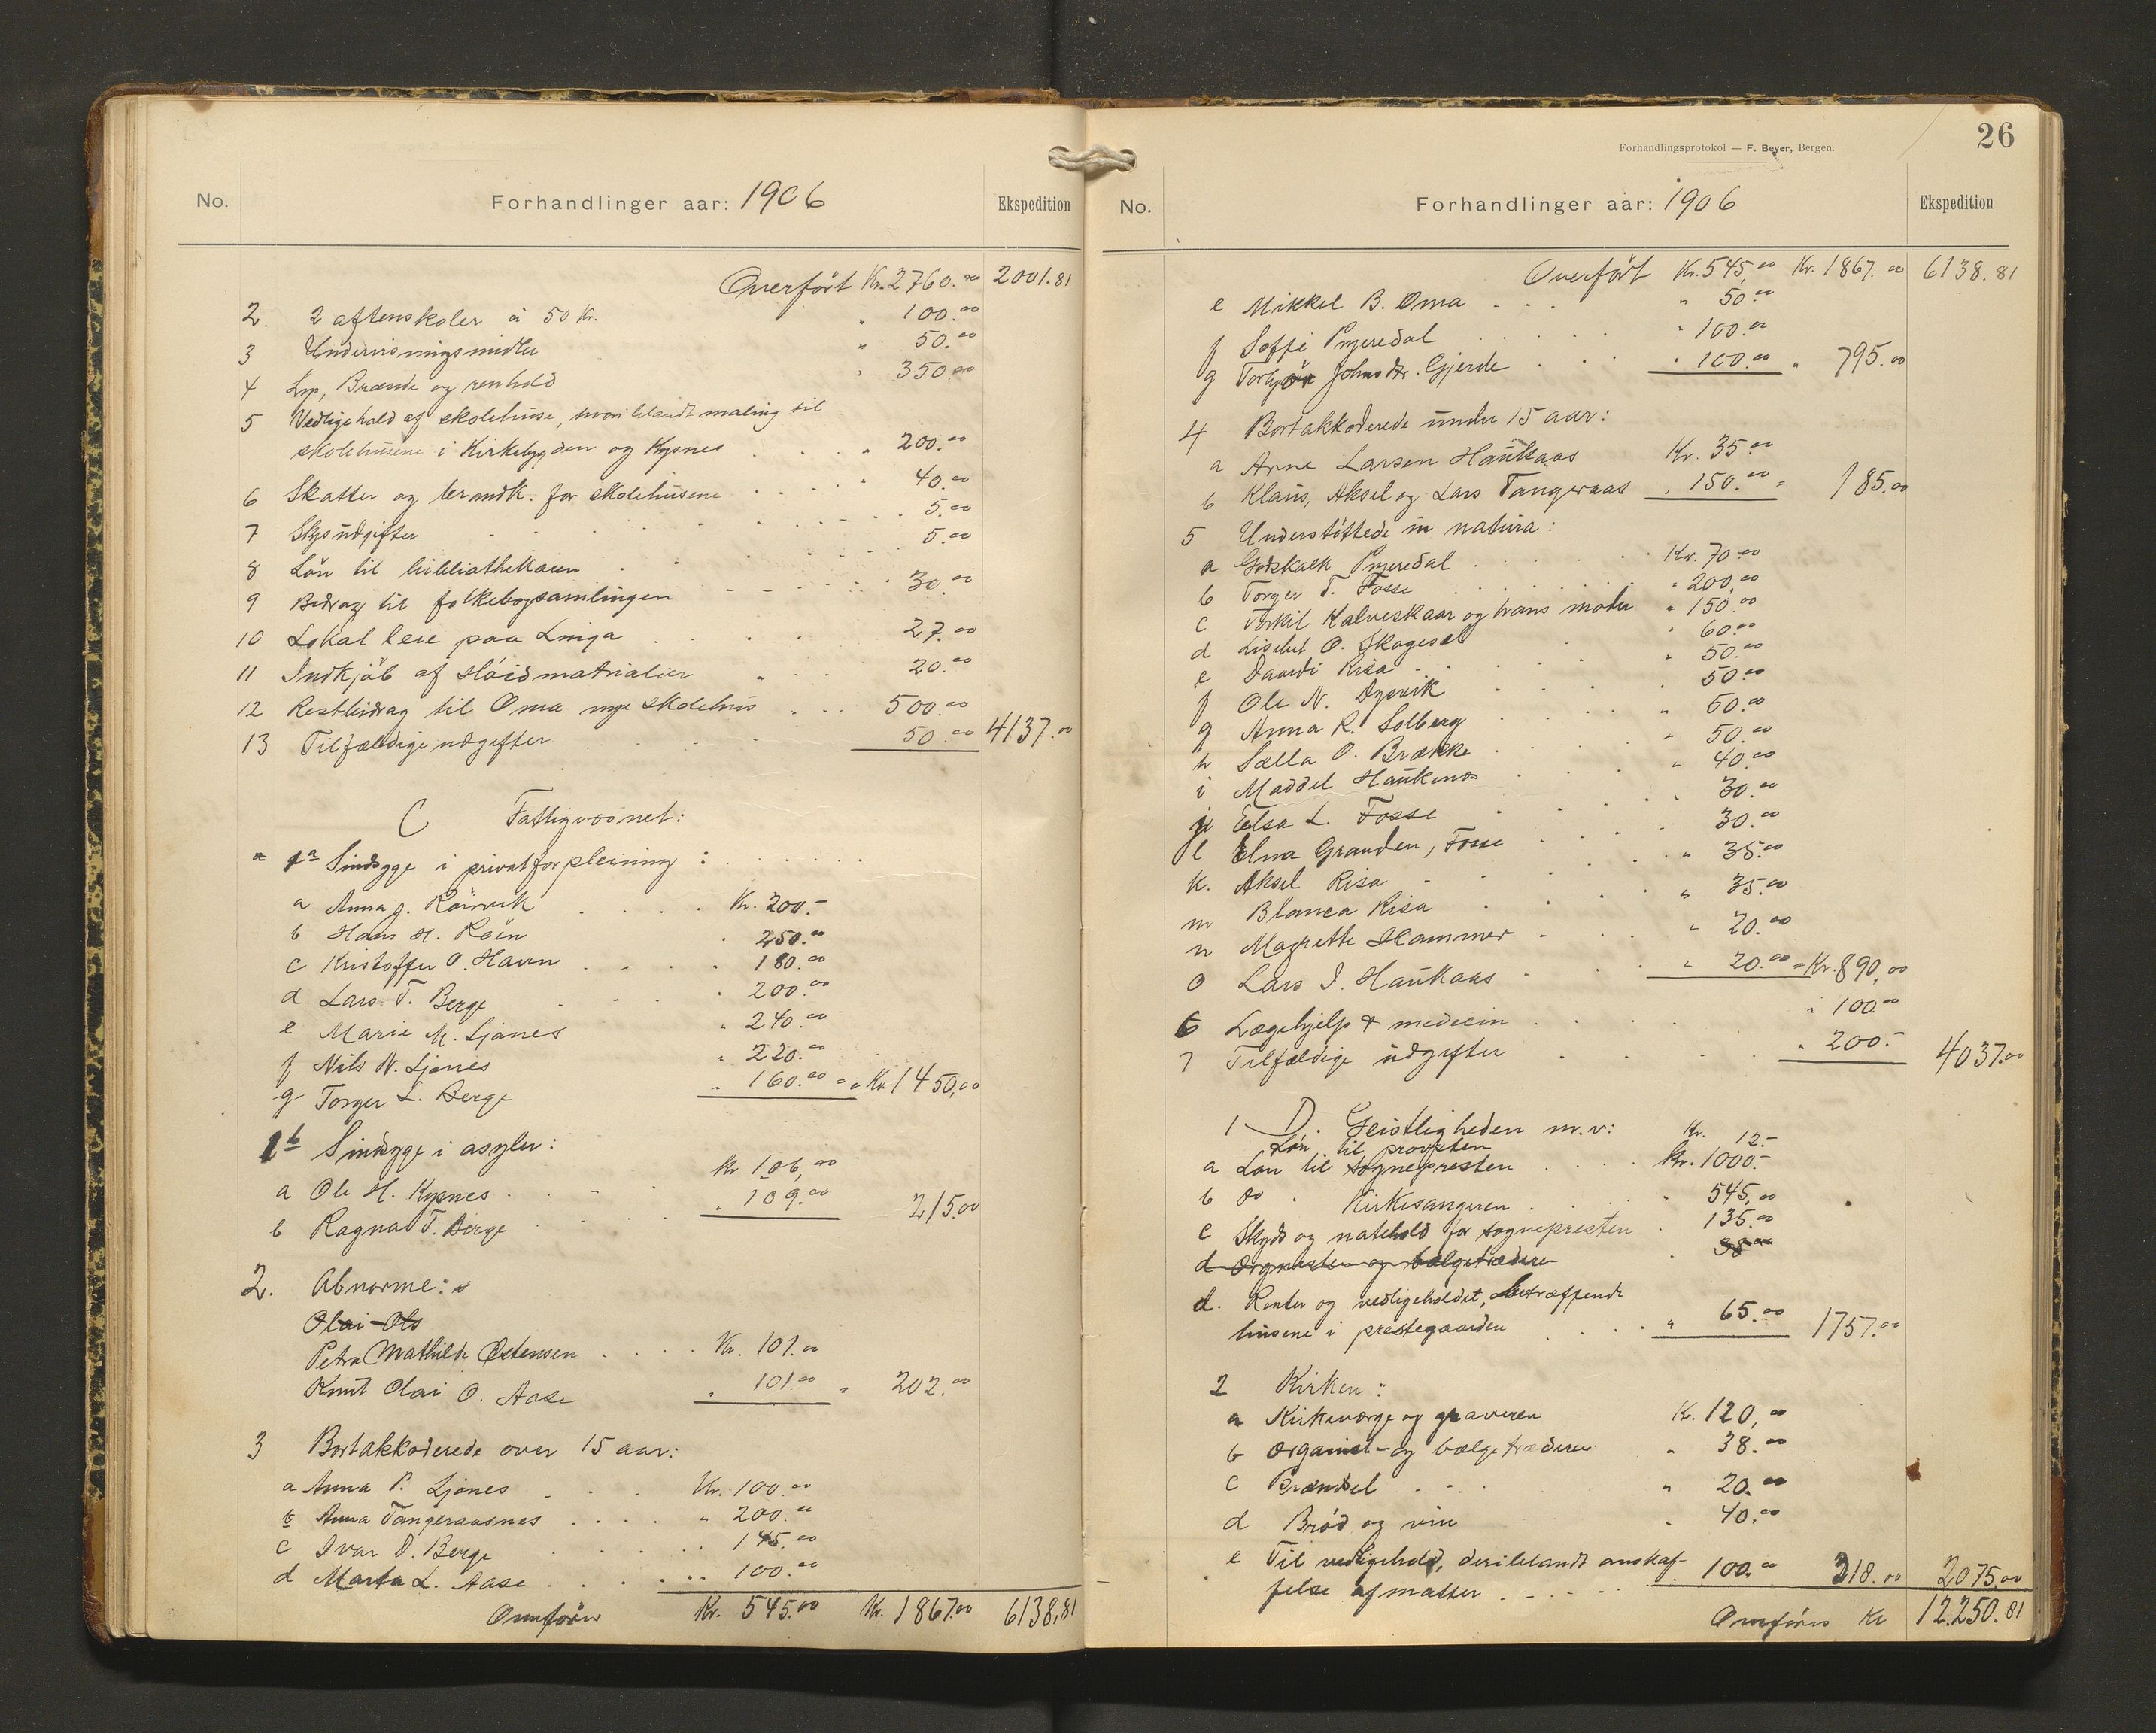 No.
Forhandlinger aar: 1906
Ekspedition
Overført Kr. 2760.00 2001.81
2. 2 aftenskoler à 50 Kr. " 100.00
3 Undervisningsmidler " 50.00
4 Lys, Brænde og renhold " 350.00
5 Vedligehold af skolehuse, hvoriblandt maling til
skolehusene i Kirkebygden og Kysnes " 200.00
6 Skatter og brandk. for skolehusene 40.00
7 Skysudgifter 5.00
8 Løn til bibliothekaren 5.00
9 Bidrag til folkebogsamlingen 30.00
10 Lokalleie paa Linga 27.00
11 Indkjøb af sløidmatrialier 20.00
12 Restbidrag til Oma nye skolehus 500.00
13 Tilfældige udgifter 50.00 4137.00
C Fattigvæsnet:
1a Sindsyge i privatforpleining:
a Anna J. Røinvik Kr. 200.-
b Hans H. Røin 250.00
c Kristoffer O. Havn 180.00
d Lars T. Berge 200.00
e Marie M. Ljønes 240.00
f Nils N. Ljønes 220.00
g Torger L. Berge 160.00 = Kr 1450,00
1b Sindsyge i asyler:
a Ole H. Kysnes Kr 106,00
b Ragna T. Berge 109.00 215.00
2. Abnorme:
Olai Ols
Petra Mathilde Østensen Kr. 101.00
Knut Olai O. Aase " 101.00 " 202.00
3 Bortakkoderede over 15 aar:
a Anna P. Ljønes Kr. 100.00
b Anna Tangeraasnes " 200.00
c Ivar D. Berge 145.00
d Marta L. Aase 100.00
Overføres Kr. 545.00 Kr. 1867.00 6138,81
26
Forhandlingsprotokol — F. Beyer, Bergen.
No.
Forhandlinger aar: 1906
Ekspedition
Overført Kr. 545,00 Kr. 1867.00 6138.81
e Mikkel B. Oma " 50.00
f Soffi 100.00
g Johnsdtr. Gjerde 100.00 " 795.00
4 Bortakkoderede under 15 aar:
a Arne Larsen Haukaas Kr. 35.00
b Klaus, Aksel og Lars Tangeraas " 150.00 = 185.00
5 Understøttede in natura:
a Godskalk Kr. 70.00
b Torger T. Fosse " 200.00
c Torkil Kalveskaar og hans moder " 150.00
d Lisebet O. Skogesel " 60.00
e Daardi Risa " 50.00
f Ole N. Dysvik 50.00
g Anna R. Solberg " 50.00
h Sælla O. Brække " 50.00
i Maddel Haukenes " 40.00
j Elsa L. Fosse 30.00
l Elna Granden, Fosse 30.00
k. Aksel Risa " 35.00
m Blanca Risa " 35.00
n Magrette Hammer " 20.00
o Lars I. Haukaas " 20.00 = Kr. 890.00
6 Lægehjelp & medecin " 100.00
7 Tilfældige udgifter " 200.- 4037.00
1 D. Geistligheden m.v:
Løn til provsten Kr. 12.-
a Løn til sognepresten Kr. 1000.-
b do " Kirkesangeren " 545,00
c Skyds og natehold for sognepresten 135.00
d Organisten og bælgetræderen 38.00
d. Renter og vedligeholdet, betræffende
husene i prestegaarden " 65.00 1757.00
2 Kirken:
a Kirkeværge og graveren Kr. 120,00
b Organist- og bælgetræderen " 38.00
c Brændsel " 20.00
d Brød og vin " 40.00
e Til vedligehold, deriblandt anskaf-
felse af matter 100.00 318.00 2075.00
Overføres Kr 12.250.81